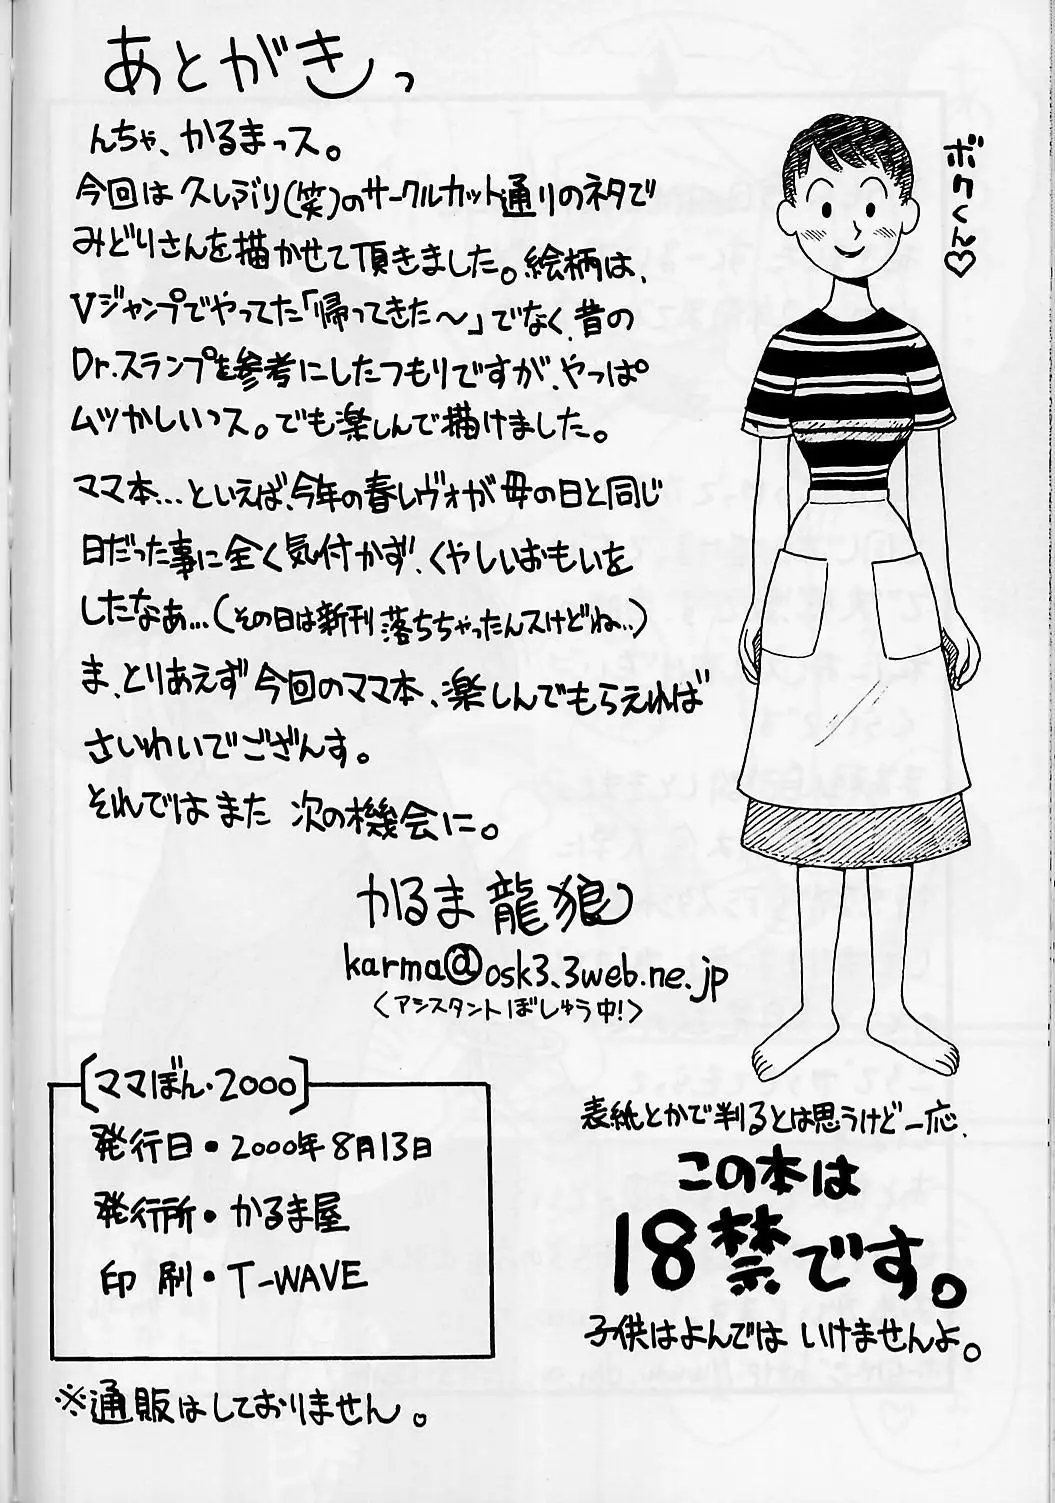 あとがきっ
んちゃ、かるまっス。
今回は久しぶり(笑)のサークルカット通りのネタで
みどりさんを描かせて頂きました。絵柄は、
Vジャンプでやってた「帰ってきた〜」でなく、昔の
Dr.スランプを参考にしたつもりですが、やっぱ
ムツかしいっス。でも楽しんで描けました。
ママ本…といえば、今年の春レヴォが母の日と同じ
日だった事に全く気付かず、くやしいおもいを
したなぁ…(その日は新刊落ちちゃったんスけどね‥)
ま、とりあえず今回のママ本、楽しんでもらえれば
さいわいでござんす。
それではまた 次の機会に。
かるま龍狼
karma@osk3.3web.ne.jp
〈アシスタントぼしゅう中!〉
ボクくん♡
[ママぼん・2000]
発行日・2000年8月13日
発行所・かるま屋
印刷・T-WAVE
※通販はしておりません。
表紙とかで判るとは思うけど一応、
この本は
18禁です。
子供はよんではいけませんよ。